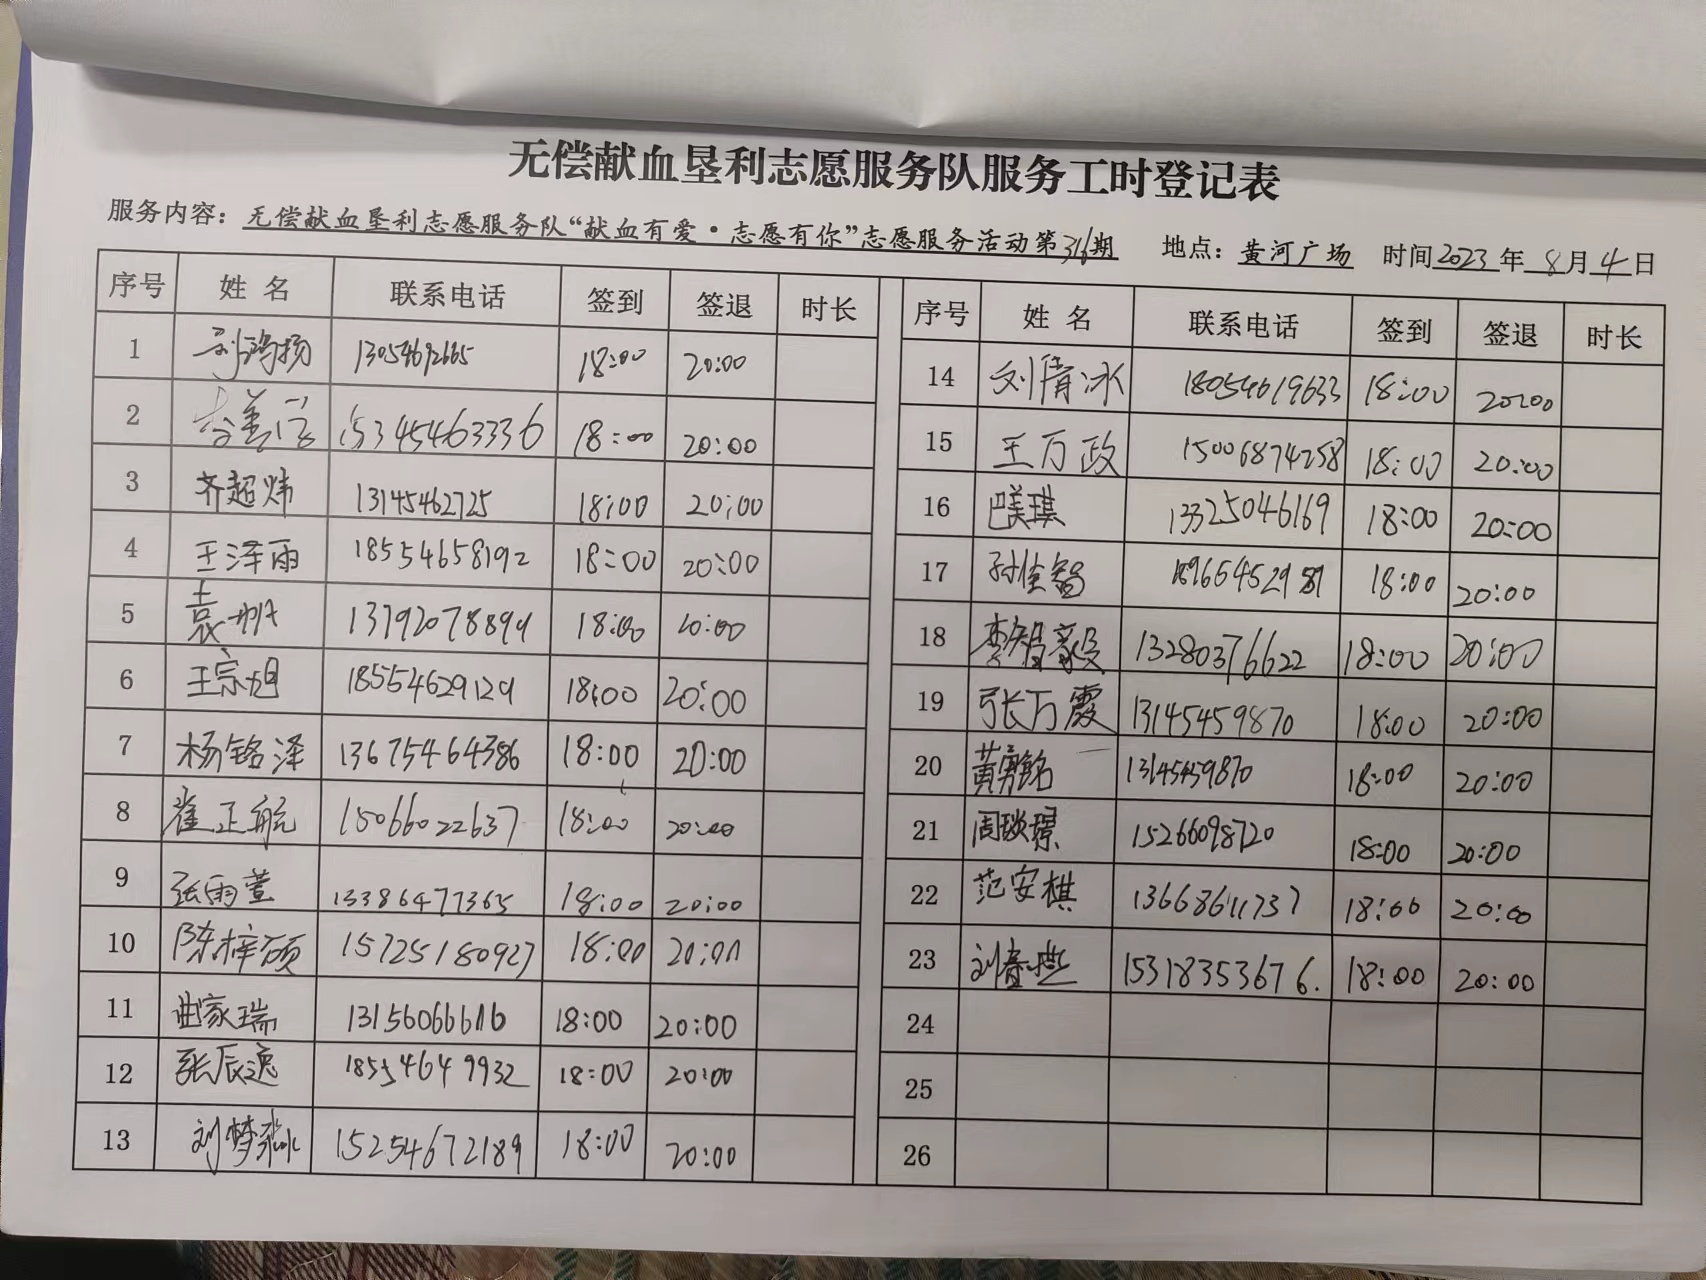 无偿献血垦利志愿服务队服务工时登记表
服务内容：无偿献血垦利志愿服务队“献血有爱·志愿有你”志愿服务活动第316期 地点：黄河广场 时间2023年8月4日
序号 姓名 联系电话 签到 签退 时长 序号 姓名 联系电话 签到 签退 时长
1 刘鸿扬 13054692665 18:00 20:00
2 15345463336 18:00 20:00
3 齐超炜 13145462725 18:00 20:00
4 王泽雨 18554658192 18:00 20:00
5 袁帅 13792078899 18:00 20:00
6 王宗旭 18554629129 18:00 20:00
7 杨铭泽 13675464386 18:00 20:00
8 崔正航 15066022637 18:00 20:00
9 张雨萱 13386477365 18:00 20:00
10 陈梓硕 15725180927 18:00 20:00
11 曲家瑞 13156066616 18:00 20:00
12 张辰逸 18554649932 18:00 20:00
13 刘梦 15254672189 18:00 20:00
14 刘倩冰 18054619633 18:00 20:00
15 王万政 15006874258 18:00 20:00
16 巴美琪 13325046169 18:00 20:00
17 孙佳智 18:00 20:00
18 李智毅 13280376622 18:00 20:00
19 张万霞 13145459870 18:00 20:00
20 黄勇铭 13145459870 18:00 20:00
21 周琰璟 15266098720 18:00 20:00
22 范安棋 13668611737 18:00 20:00
23 刘春燕 15318353676. 18:00 20:00
24
25
26